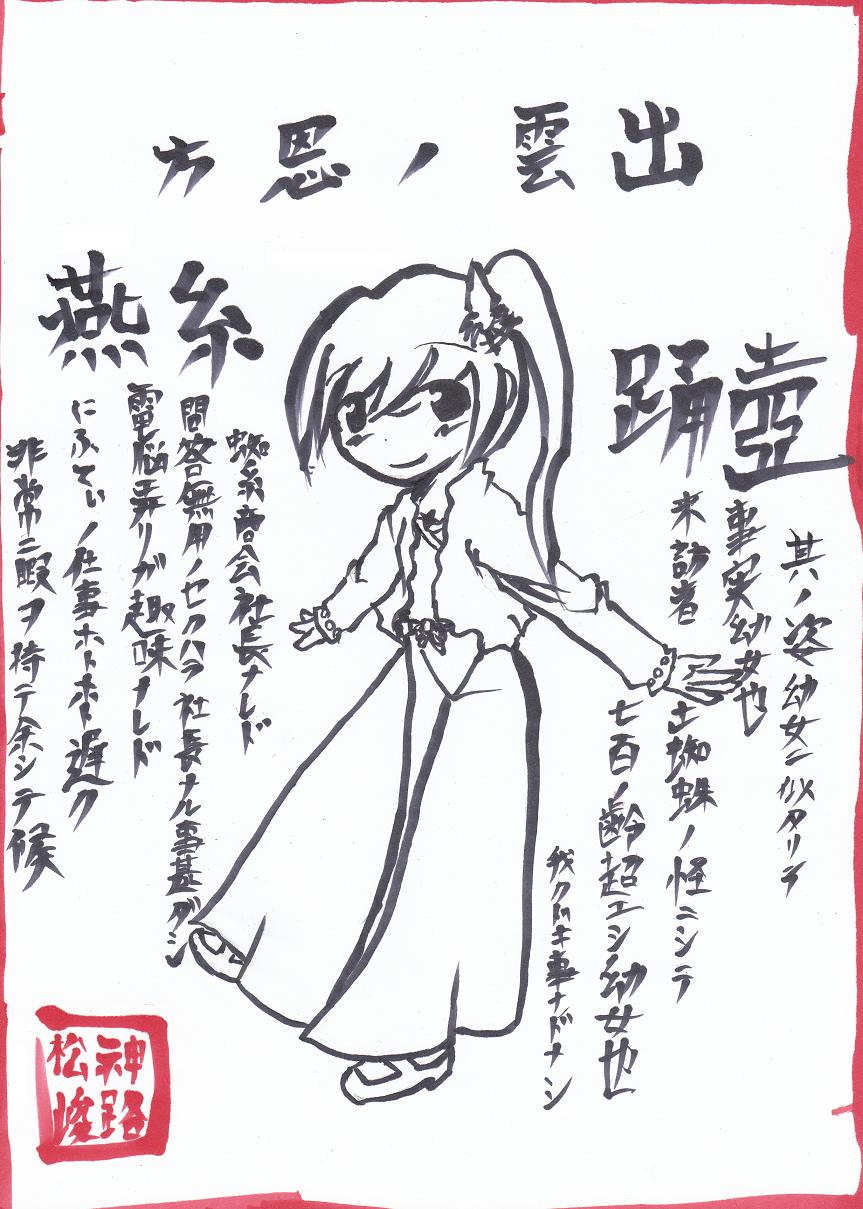 出雲ノ恩方
壺踊
其ノ姿幼女ニ似タリテ
事実幼女也
来訪者
土蜘蛛ノ怪ニシテ
七百ノ齢超エシ幼女也
我クドキ事ナドナシ
糸燕
蜘糸商会社長ナレド
問客無用ノセクハラ社長ナル事甚ダシ
電脳弄リガ趣味ナレド
にふてぃノ仕事ホトホト遅ク
非常ニ暇ヲ持テ余シテ候
神路
松峻